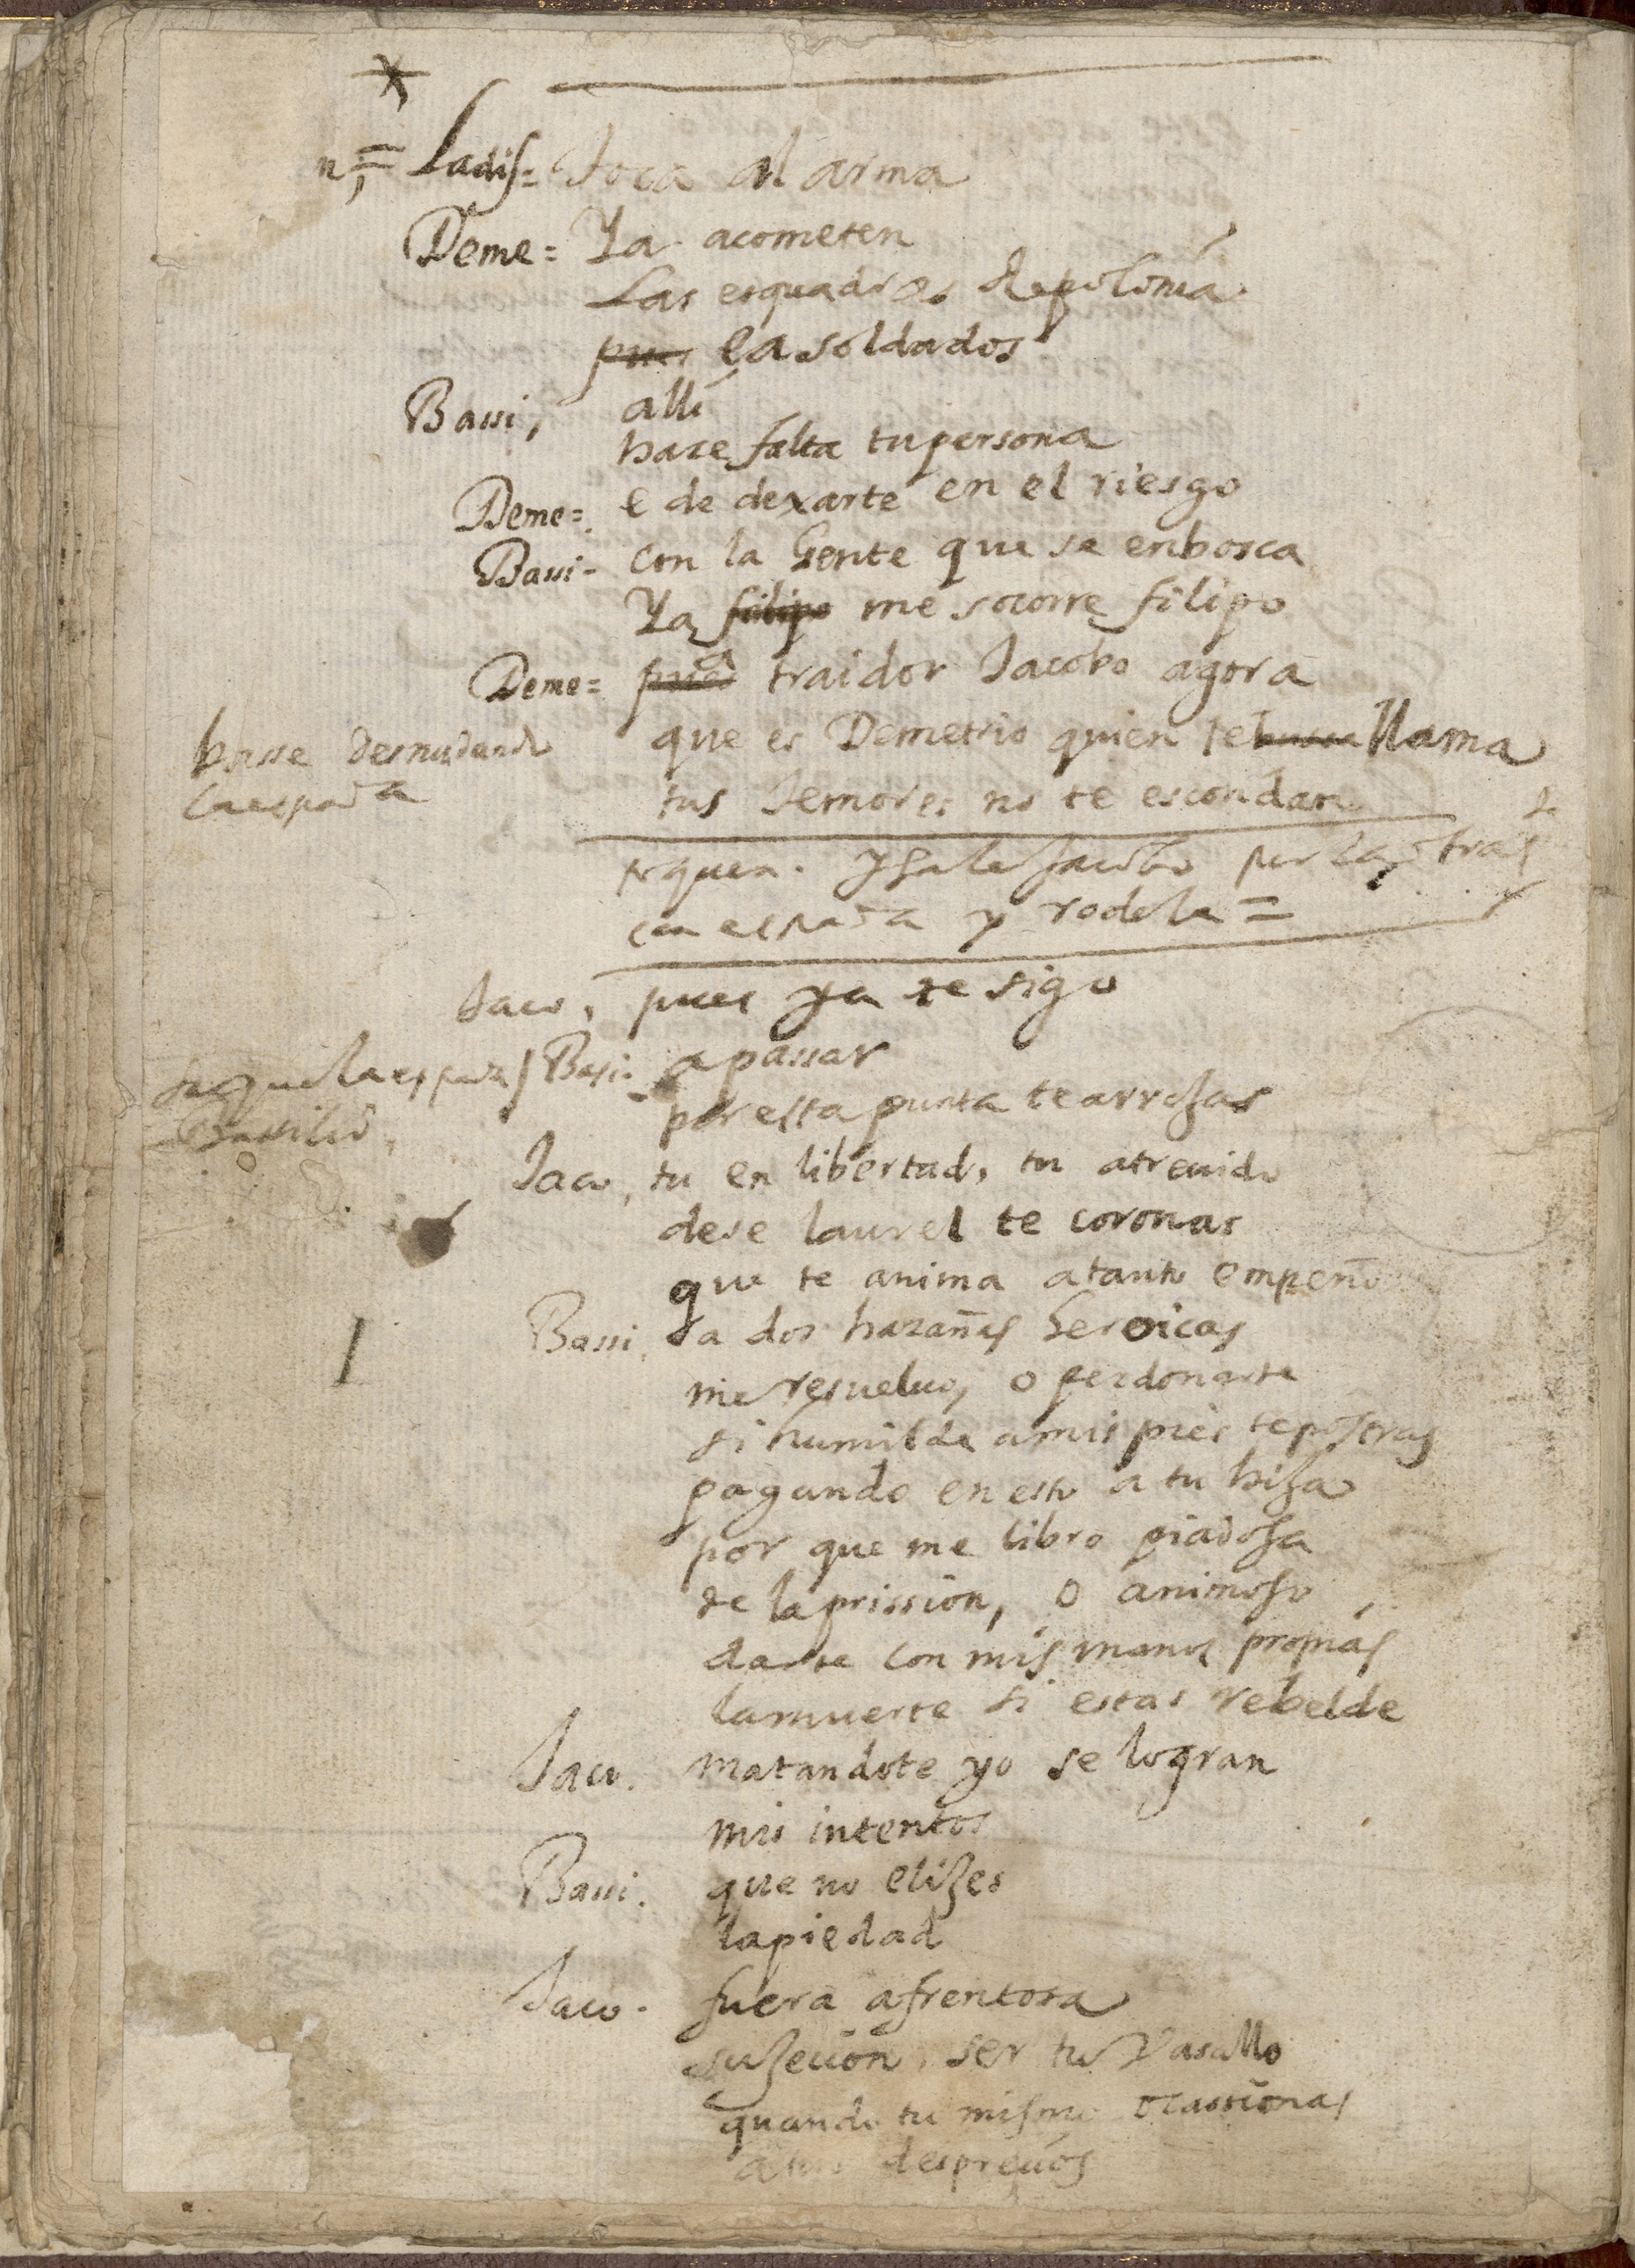 n,= Ladis= Toca al arma
Deme= Ya acometen
Las esquadras de polonia
pues ea soldados
Bassi, alli
haze falta tu persona
Deme= e de dexarte en el riesgo
Bassi- con la Gente que se enbosca
Ya filipo me socorre filipo
Deme= pues a traidor Jacobo agora
que es Demetrio quien te busca llama
base desnudando
la espada
tus temores no te escondan
toquen. y sale Jacobo por la otra
con espada y rodela =
Jaco, pues ya te sigo
saque la espada Basi- a passar
Bassilio,
por esta punta te arrojas
Jaco, tu en libertad, tu atreuido
dese laurel te coronas
que te anima a tanto empeño
Bassi, a dos hazañas heroicas
me resueluo, o perdonarte
si humilde a mis pies te postras
pagando en esto a tu hija
por que me libro piadosa
de la prission, o animoso
darte con mis manos propias
la muerte si estas rebelde
Jaco. matandote yo se logran
mis intentos
Bassi. que no elijes
la piedad
Jaco. fuera afrentosa
sujecion, ser tu Vasallo
quando tu mismo ocassionas
desprecios